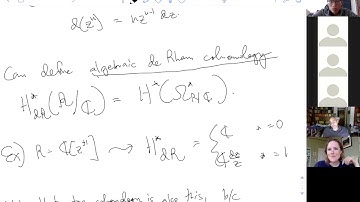 d(zⁿ) = nzⁿ⁻¹ dz.
Can define algebraic de Rham cohomology
H*_dR(R/ℂ) = H*(Ω*_R/ℂ).
Ex) R = ℂ[z^±1] ⇝ H*_dR = { ℂ * = 0
ℂ dz/z * = 1
is also this, b/c